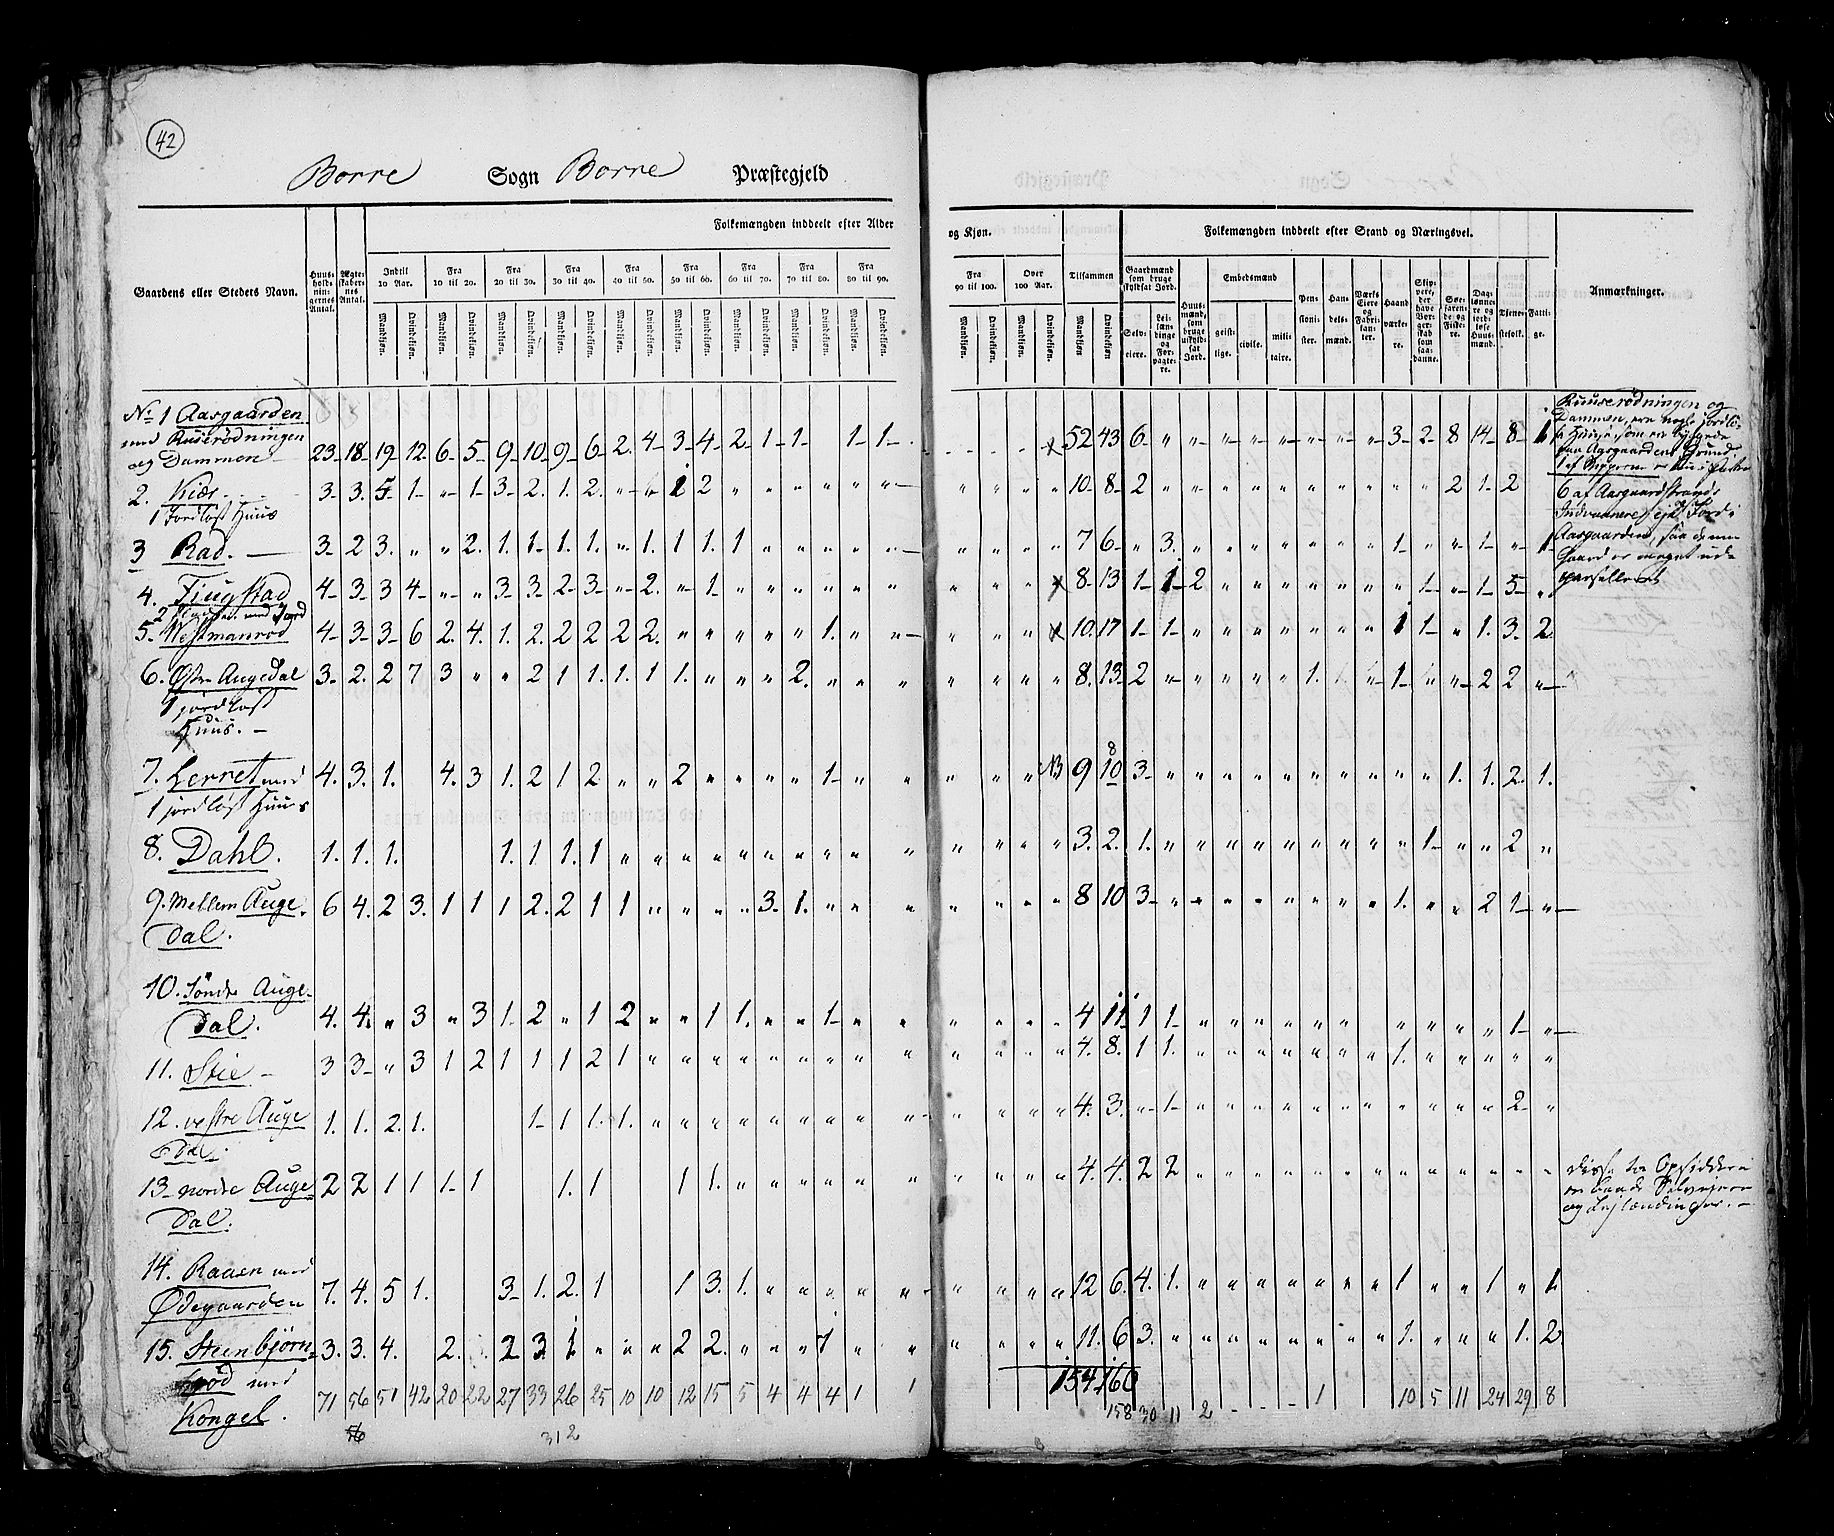 42
Borre Sogn Borre Præstegjeld
Gaardens eller Stedets Navn.
Huusholdningernes Antal.
Ægteskabernes Antal.
Folkemængden inddeelt efter Alder og Kjøn.
Indtil 10 Aar. Fra 10 til 20. Fra 20 til 30. Fra 30 til 40. Fra 40 til 50. Fra 50 til 60. Fra 60 til 70. Fra 70 til 80. Fra 80 til 90. Fra 90 til 100. Over 100 Aar. Tilsammen
Mandkjøn. Qvindekjøn.
Folkemængden inddeelt efter Stand og Næringsvei.
Gaardmænd som bruge skyldsat Jord.
Selveiere. Leilændinge og Forpagtere.
Huusmænd, som bruge uskyldsat Jord.
Embedsmænd
geistlige. civile. militaire.
Pensionister.
Handelsmænd.
Værkseiere og Fabrikanter.
Haandværkere.
Skippere, der have Borgerskab som saadanne.
Søefarende og Fiskere.
Daglønnere og jordløse Huusmænd.
Tjenestefolk.
Fattige.
Anmærkninger.
No 1 Aasgaarden
med Ruserødningen
og Dammen 23 18 19 12 6 5 9 10 9 6 2 4 3 4 2 1 1 - 1 1 52 43 6 " " " " " " " " 3 2 8 14 8 1
2. Kiær. 3 3 5 1 " 1 3 2 1 2 " " 1 2 " " " " " " 10 8 2 " " " " " " " " " " 2 1 2
1 Jordløst Huus
3 Rad. 3 2 3 " " 2 1 1 1 1 " 1 1 1 1 " " " " " 7 6 " 3 " " " " " " " 1 " " 1 " 1
4. Fiugstad 4 3 3 4 " " 3 3 2 3 " 2 " 1 " " " " 8 13 1 1 2 " " " " " " " 1 " 1 5 "
2 Pladse med Jord
5. Vestmanrød 4 3 3 6 2 4 1 2 2 2 2 2 " " " " " 1 " " 10 17 1 1 " " " " " " " 1 1 " 1 3 2
6. Østre Augedal 3 2 2 7 3 " " 2 1 1 1 1 1 " " " 2 " " " 8 13 2 " " " " " 1 " " 1 " " 2 2 "
1 jordløst
Huus.
7. Lerret med 4 3 1 4 3 1 2 1 2 " " 2 " " " " 1 " " NB 9 10 8 3 " " " " " " " " " " 1 1 2 1
1 jordløst Huus
8. Dahl. 1 1 1 1 1 1 1 " " " " " " " " " " 3 2 1 " " " " " " " " " 1 " " 2 "
9. Mellem Auge
dal. 6 4 2 3 1 1 1 2 2 1 1 " " " " 3 1 " " " 8 10 3 " " " " " " " " 1 " " 2 1 "
10. Søndre Auge
dal. 4 4 " 3 " 3 1 2 " 1 2 " " 1 1 " " 1 " " 4 11 1 1 " " " " " " " " " " 1 "
11. Stie 3 3 " 3 1 2 1 1 1 2 1 " " " " " " " " " 4 8 1 1 " " " " " " " 1 " " " " "
12. vestre Auge
dal. 1 1 2 1 1 1 1 1 " " " " " " " " " 4 3 " 1 " " " " " " " " " " " 2 "
13 nordre Auge
dal. 2 2 1 1 1 1 1 1 1 1 " " " " " " 4 4 2 2 " " " " " " " " " " " " "
14. Raaen med
Ødegaarden 7 4 5 1 3 1 2 1 1 3 1 " " " " " 12 6 4 1 " " " " " " " 1 " " 1 " 1
15. Steenbjørn
rød med 3 3 4 2 2 3 1 " " " 2 2 " " " 1 " " 11 6 3 " " " " " " " " 1 " " " 1 2
Kongel. 71 56 51 42 20 22 27 33 26 25 10 10 12 15 5 4 4 4 1 1 154 160 158 30 11 2 - - - 1 10 5 11 24 29 8
56 312
Ruuserødningen og
Dammen, ere nogle jordlø-
se Huuse, som er bygede
paa Aasgaardens Grund
1 af Skipperne er
6 af Aasgaardstrands
Indvaanere eje Jord i
Aasgaarden, saa denne
Gaard er meget ud-
parselleret
disse to Opsiddere
er baade Selvejere
og Lejlændinger.